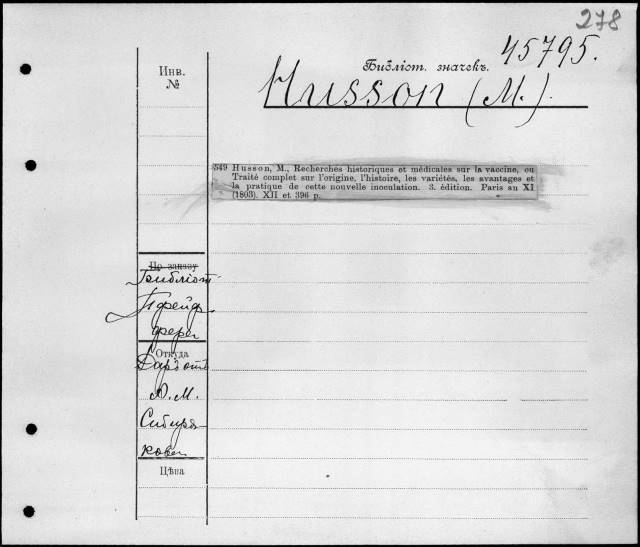 278
45795.
Библіот. значекъ.
Инв.
№
Husson (M.)
549 Husson, M., Recherches historiques et médicales sur la vaccine, ou
Traité complet sur l'origine, l'histoire, les variétés, les avantages et
la pratique de cette nouvelle inoculation. 3. édition. Paris an XI
(1803). XII et 396 p.
По заказу
Библіот.
Пфейф
фера
Откуда
Даръ отъ
А. М.
Сибиря
кова
Цѣна